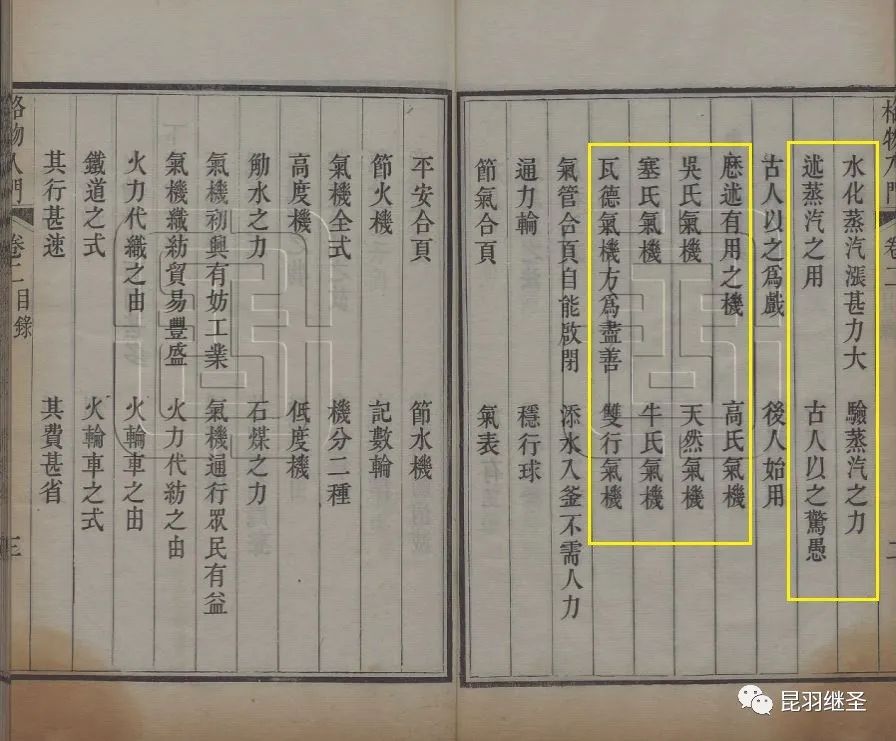 格物入門 卷二
水化蒸汽漲甚力大 驗蒸汽之力
述蒸汽之用 古人以之驚愚
古人以之爲戲 後人始用
歷述有用之機 高氏氣機
吳氏氣機 天然氣機
塞氏氣機 牛氏氣機
瓦德氣機方爲盡善 雙行氣機
氣管合頁自能啟閉 添水入釜不需人力
通力輪 穩行球
節氣合頁 氣表
平安合頁 節水機
節火機 記數輪
氣機全式 機分二種
高度機 低度機
勛水之力 石煤之力
氣機初興有妨工業 氣機通行眾民有益
氣機織紡貿易豐盛 火力代紡之由
火力代織之由 火輪車之由
鐵道之式 火輪車之式
其行甚速 其費甚省
格物入門 卷二目錄 三
昆羽继圣